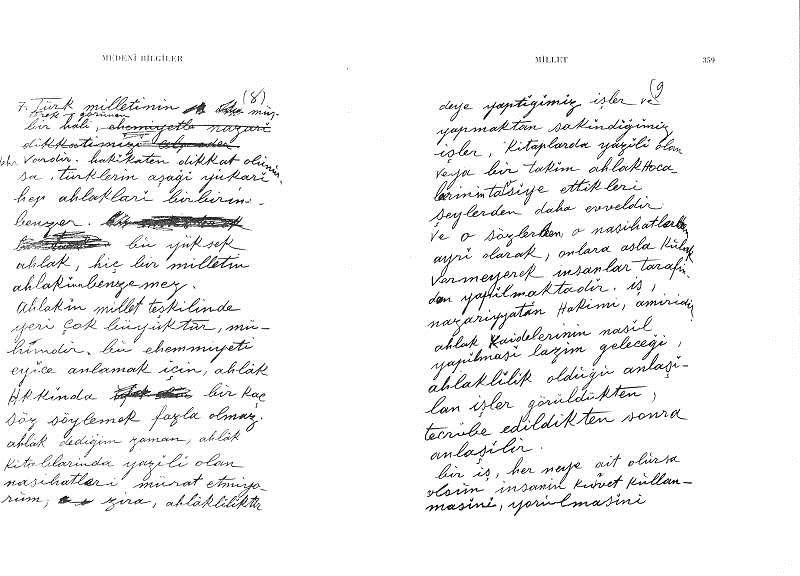 MEDENİ BİLGİLER
(8)
7. Türk milletinin müş-
terek görünen
bir hali, ehemiyetle nazari
dikkatimizi
daha vardır. hakikaten dikkat olunur-
sa, türklerin aşaği yukari
hep ahlaklari birbirine
benzer. bu yüksek
ahlak, hiç bir milletin
ahlakina benzemez.
ahlakin millet teşkilinde
yeri çok büyüktür, mü-
himdir. bu ehemmiyeti
eyice anlamak için, ahlâk
Hkkinda bir kaç
söz söylemek fazla olmaz.
ahlak dediğim zaman, ahlâk
kitablarinda yazili olan
nasihatleri murat etmiyo-
rum; zira, ahlâklilikta
MİLLET 359
(9
deye yaptiğimiz işler ve
yapmaktan sakindiğimiz
işler, kitaplarda yazili olan
veya bir takim ahlak Hoca-
lerinin tavsiye ettikleri
şeylerden daha evveldir
ve o sözlerden, o nasihatlerden
ayri olarak, onlara asla kulak
vermeyerek insanlar tarafin-
dan yapilmaktadir. iş,
nazariyyatın Hakimi, amiridir
ahlak kaidelerinin nasil
yapilmasi lazim geleceği,
ahlaklilik olduğu anlaşi-
lan işler görüldükten,
tecrübe edildikten sonra
anlaşilir.
bir iş, her neye ait olursa
olsun insanin kuvvet kullan-
masini, yorulmasini